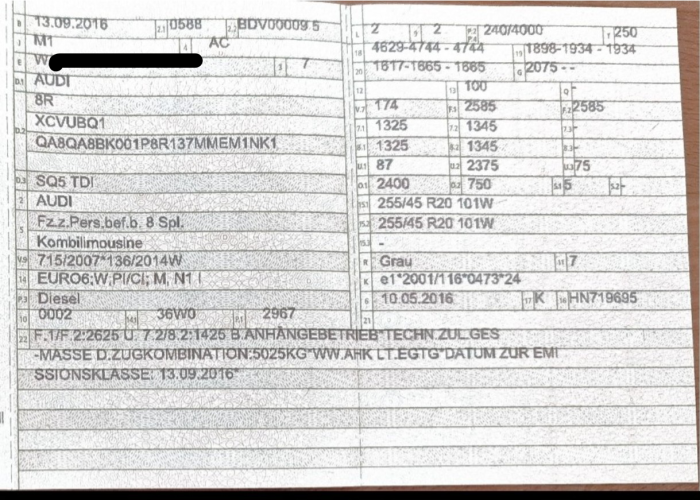 B 13.09.2016 2.1 0588 2.2 BDV00009 5
J M1 4 AC
E W 3 7
D.1 AUDI
8R
D.2 XCVUBQ1
QA8QA8BK001P8R137MMEM1NK1
D.3 SQ5 TDI
2 AUDI
5 Fz.z.Pers.bef.b. 8 Spl.
Kombilimousine
V.9 715/2007*136/2014W
14 EURO6;W;PI/CI; M, N1 I
P.3 Diesel
10 0002 14.1 36W0 P.1 2967
L 2 9 2 P.2 P.4 240/4000 T 250
18 4629-4744 - 4744 19 1898-1934 - 1934
20 1617-1665 - 1665 G 2075 - -
12 13 100 Q -
V.7 174 F.1 2585 F.2 2585
7.1 1325 7.2 1345 7.3 -
8.1 1325 8.2 1345 8.3 -
U.1 87 U.2 2375 U.3 75
O.1 2400 O.2 750 S.1 5 S.2 -
15.1 255/45 R20 101W
15.2 255/45 R20 101W
15.3 -
R Grau 11 7
K e1*2001/116*0473*24
6 10.05.2016 17 K 16 HN719695
21
22 F.1/F.2:2625 U. 7.2/8.2:1425 B.ANHÄNGEBETRIEB*TECHN.ZUL.GES
-MASSE D.ZUGKOMBINATION:5025KG*WW.AHK LT.EGTG*DATUM ZUR EMI
SSIONSKLASSE: 13.09.2016*